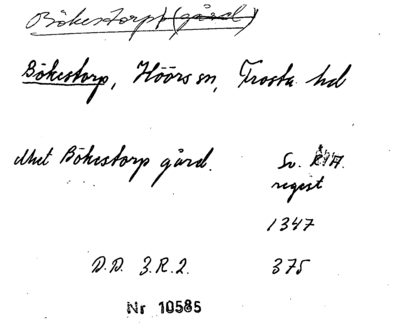 Bökestorp (gård)
Bökestorp, Höörs sn, Frosta hd
Bökestorp gård. Sv.
regest
1347
D.D. 3.R.2. 375
Nr 10585